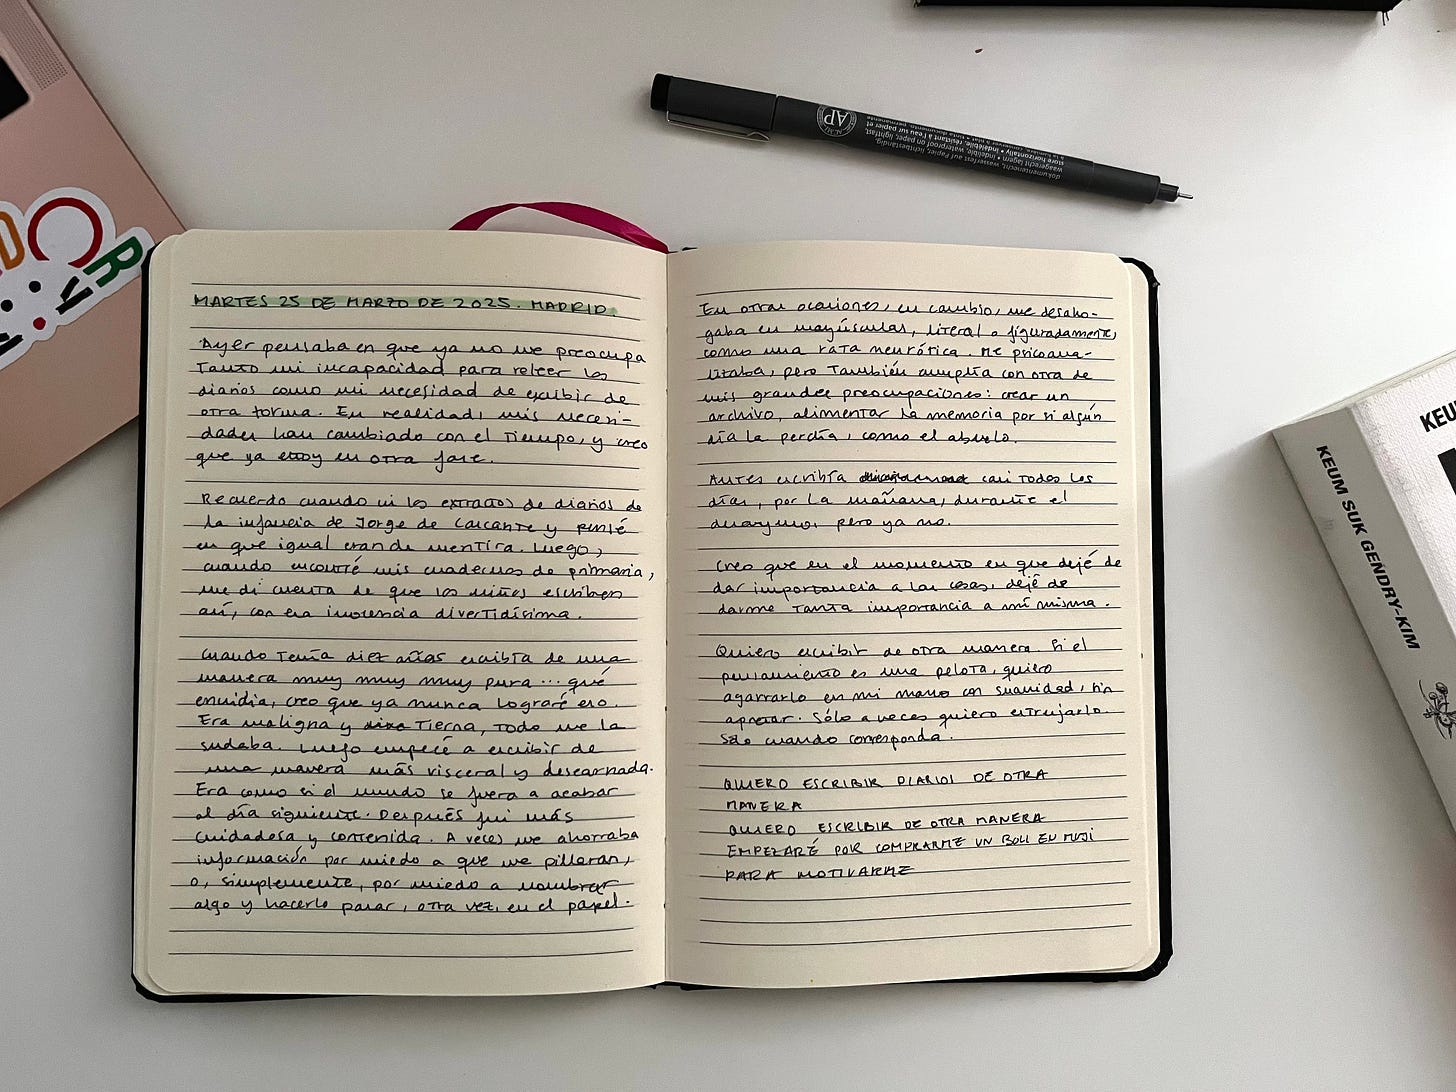 MARTES 25 DE MARZO DE 2025. MADRID.
Ayer pensaba en que ya no me preocupa
tanto mi incapacidad para releer los
diarios como mi necesidad de escribir de
otra forma. En realidad, mis necesi-
dades han cambiado con el tiempo, y creo
que ya estoy en otra fase.
Recuerdo cuando vi los extractos de diarios de
la infancia de Jorge de Cascante y pensé
en que igual eran de mentira. Luego,
cuando encontré mis cuadernos de primaria,
me di cuenta de que los niños escriben
así, con esa inocencia divertidísima.
Cuando tenía diez años escribía de una
manera muy muy muy pura... qué
envidia, creo que ya nunca lograré eso.
Era maligna y tierna, todo me la
sudaba. Luego empecé a escribir de
una manera más visceral y descarnada.
Era como si el mundo se fuera a acabar
al día siguiente. Después fui más
cuidadosa y contenida. A veces me ahorraba
información por miedo a que me pillaran,
o, simplemente, por miedo a nombrar
algo y hacerlo pasar, otra vez, en el papel.
En otras ocasiones, en cambio, me desaho-
gaba en mayúsculas, literal o figuradamente,
como una rata neurótica. Me psicoana-
lizaba, pero también cumplía con otra de
mis grandes preocupaciones: crear un
archivo, alimentar la memoria por si algún
día la perdía, como el abuelo.
Antes escribía casi todos los
días, por la mañana, durante el
desayuno, pero ya no.
Creo que en el momento en que dejé de
dar importancia a las cosas, dejé de
darme tanta importancia a mí misma.
Quiero escribir de otra manera. Si el
pensamiento es una pelota, quiero
agarrarlo en mi mano con suavidad, sin
apretar. Sólo a veces quiero estrujarlo.
Sólo cuando corresponda.
QUIERO ESCRIBIR DIARIOS DE OTRA
MANERA
QUIERO ESCRIBIR DE OTRA MANERA
EMPEZARÉ POR COMPRARME UN BOLI EN MUJI
PARA MOTIVARME
KEUM SUK GENDRY-KIM
KEU
AP
dokumentenecht, wasserfest auf Papier, lichtbeständig,
waagerecht lagern • indelible, waterproof on paper, lightfast,
store horizontally • indélébile, résistant à l'eau sur papier et